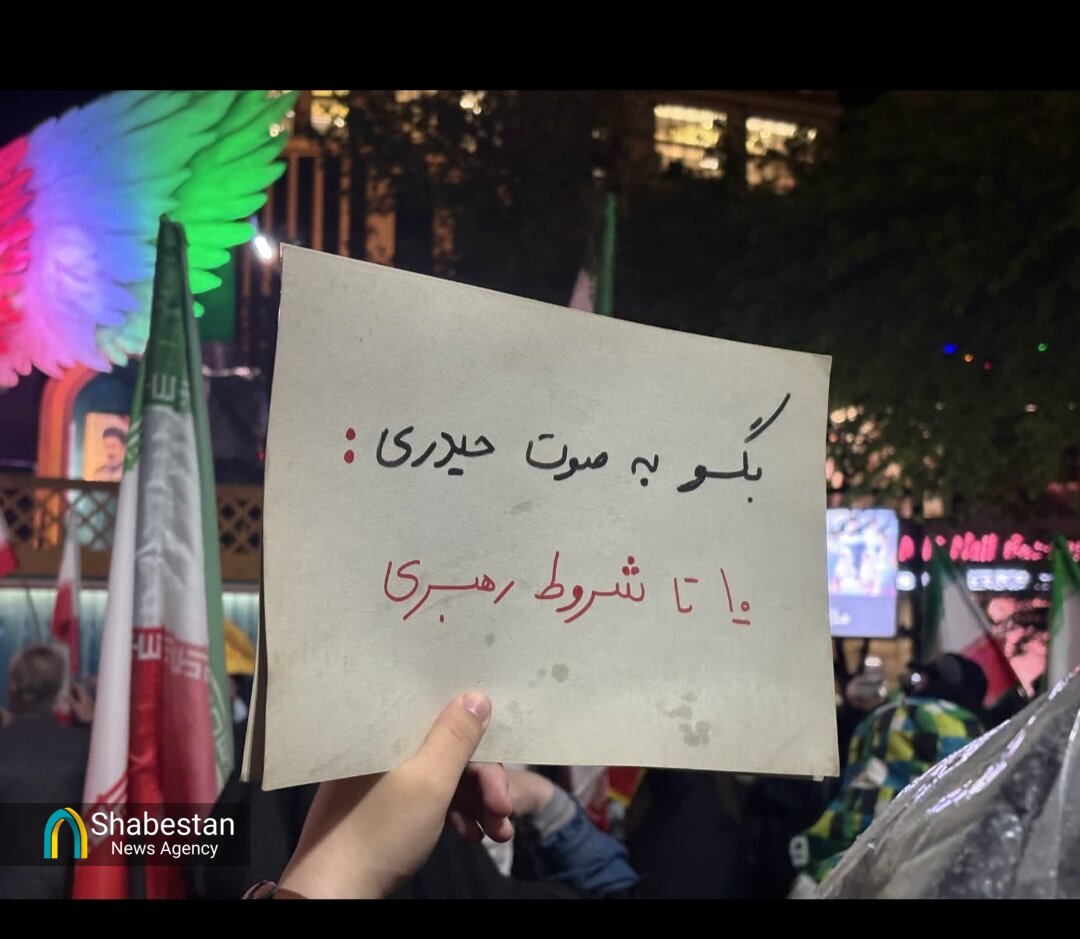 بگو به صوت حیدری :
۱۰ تا شروط رهبری
Shabestan
News Agency